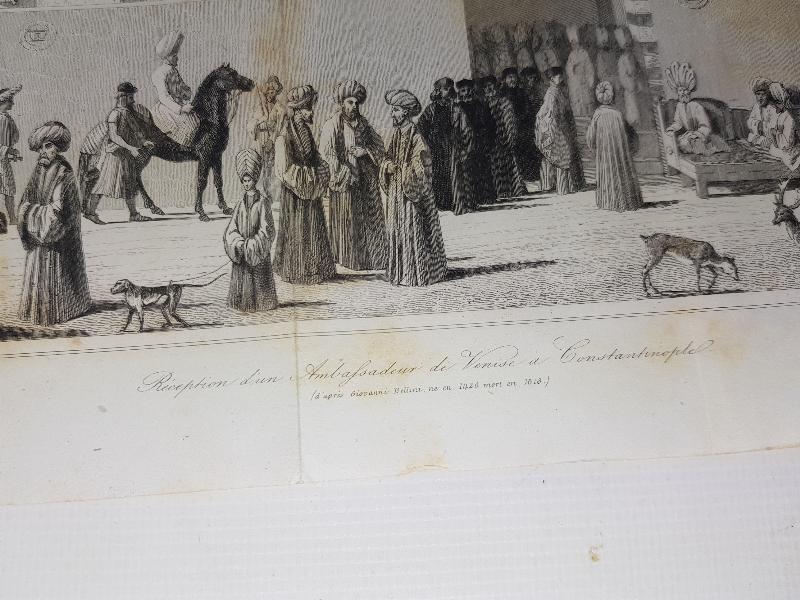 Réception d'un Ambassadeur de Venise a Constantinople
(d'après Giovanni Bellini, né en 1426 mort en 1516.)